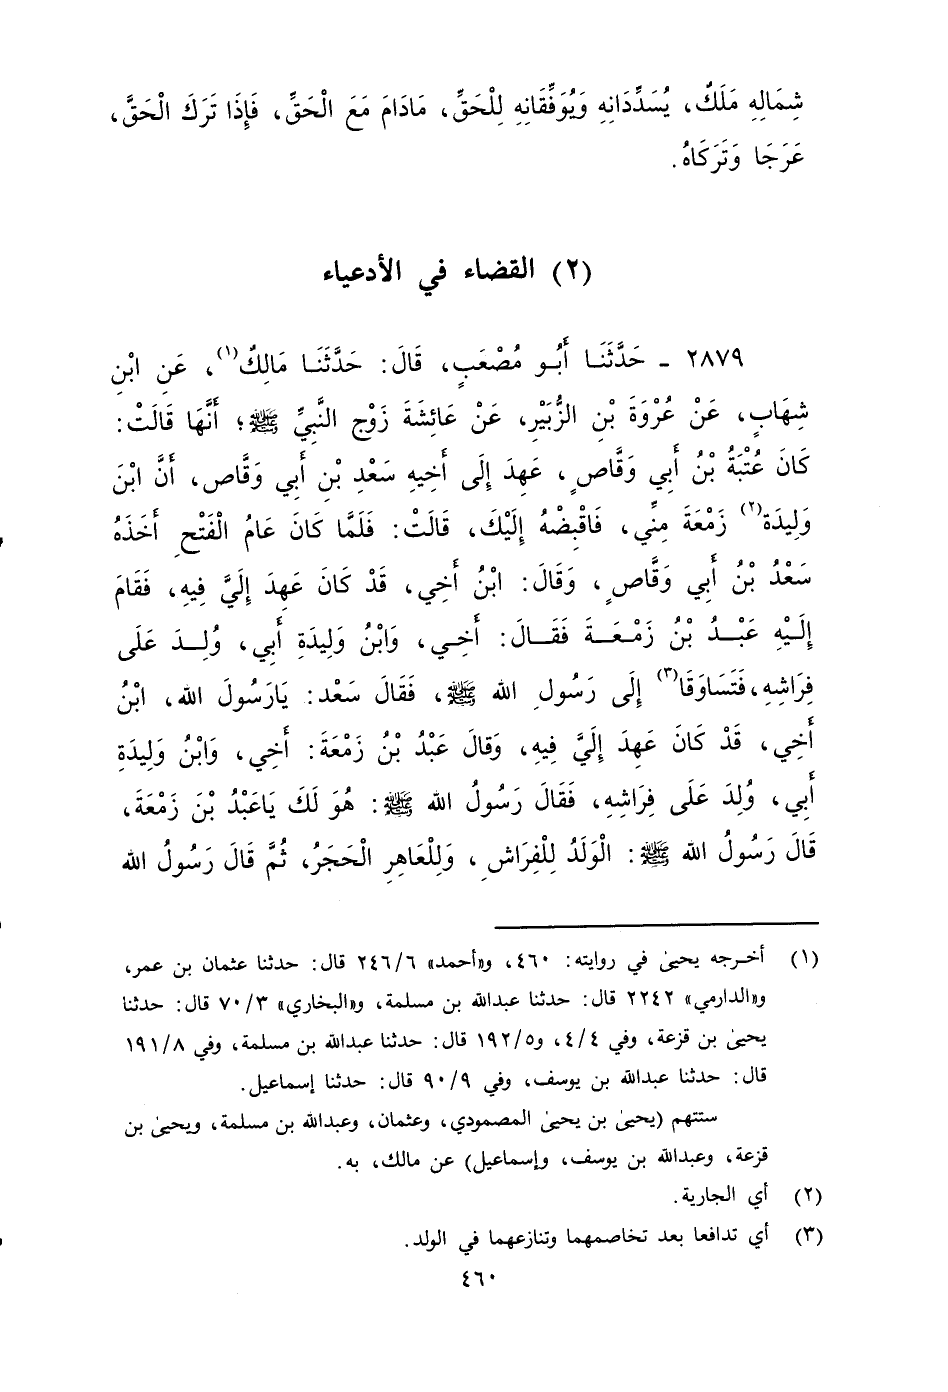 شِمَالِهِ مَلَكٌ، يُسَدِّدَانِهِ وَيُوَفِّقَانِهِ لِلْحَقِّ، مَادَامَ مَعَ الْحَقِّ، فَإِذَا تَرَكَ الْحَقَّ،
عَرَجَا وَتَرَكَاهُ.
(٢) القضاء في الأدعياء
٢٨٧٩ - حَدَّثَنَا أَبُو مُصْعَبٍ، قَالَ: حَدَّثَنَا مَالِكٌ(١)، عَنِ ابْنِ
شِهَابٍ، عَنْ عُرْوَةَ بْنِ الزُّبَيْرِ، عَنْ عَائِشَةَ زَوْجِ النَّبِيِّ ﷺ؛ أَنَّهَا قَالَتْ:
كَانَ عُتْبَةُ بْنُ أَبي وَقَّاصٍ، عَهِدَ إِلَى أَخِيهِ سَعْدِ بْنِ أَبي وَقَّاصٍ، أَنَّ ابْنَ
وَلِيدَةِ(٢) زَمْعَةَ مِنِّي، فَاقْبِضْهُ إِلَيْكَ، قَالَتْ: فَلَمَّا كَانَ عَامُ الْفَتْحِ أَخَذَهُ
سَعْدُ بْنُ أَبي وَقَّاصٍ، وَقَالَ: ابْنُ أَخِي، قَدْ كَانَ عَهِدَ إِلَيَّ فِيهِ، فَقَامَ
إِلَيْهِ عَبْدُ بْنُ زَمْعَةَ فَقَالَ: أَخِي، وَابْنُ وَلِيدَةِ أَبي، وُلِدَ عَلَى
فِرَاشِهِ، فَتَسَاوَقَا(٣) إِلَى رَسُولِ الله ﷺ، فَقَالَ سَعْد: يَارَسُولَ الله، ابْنُ
أَخِي، قَدْ كَانَ عَهِدَ إِلَيَّ فِيهِ، وَقَالَ عَبْدُ بْنُ زَمْعَةَ: أَخِي، وَابْنُ وَلِيدَةِ
أَبي، وُلِدَ عَلَى فِرَاشِهِ، فَقَالَ رَسُولُ الله ﷺ: هُوَ لَكَ يَاعَبْدُ بْنَ زَمْعَةَ،
قَالَ رَسُولُ الله ﷺ: الْوَلَدُ لِلْفِرَاشِ، وَلِلْعَاهِرِ الْحَجَرُ، ثُمَّ قَالَ رَسُولُ الله
(١) أخرجه يحيىٰ في روايته: ٤٦٠، و«أحمد» ٢٤٦/٦ قال: حدثنا عثمان بن عمر،
و«الدارمي» ٢٢٤٢ قال: حدثنا عبدالله بن مسلمة، و«البخاري» ٧٠/٣ قال: حدثنا
يحيىٰ بن قزعة، وفي ٤/٤، و١٩٢/٥ قال: حدثنا عبدالله بن مسلمة، وفي ١٩١/٨
قال: حدثنا عبدالله بن يوسف، وفي ٩٠/٩ قال: حدثنا إسماعيل.
ستتهم (يحيىٰ بن يحيىٰ المصمودي، وعثمان، وعبدالله بن مسلمة، ويحيىٰ بن
قزعة، وعبدالله بن يوسف، وإسماعيل) عن مالك، به.
(٢) أي الجارية.
(٣) أي تدافعا بعد تخاصمهما وتنازعهما في الولد.
٤٦٠